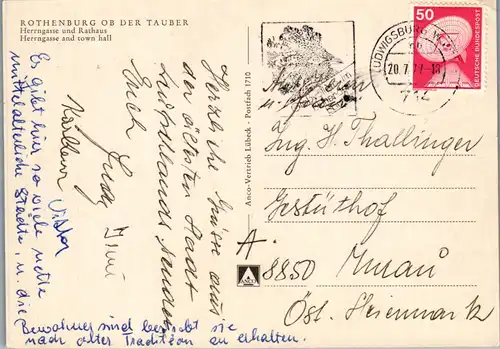 ROTHENBURG OB DER TAUBER
Herrngasse und Rathaus
Herrngasse and town hall
Es gibt hier so viele nette
mittelalterliche Städte, u. die
Bewohner sind bestrebt sie
nach alter Tradition zu erhalten.
Herzliche Grüsse aus
der ältesten Stadt
Deutschlands senden
Euch
Viktor
Anco-Vertrieb Lübeck · Postfach 1710
ANCO
LUDWIGSBURG
20.7.77-18
714
50
DEUTSCHE BUNDESPOST
Ing. H. Thallinger
Gestüthof
A.
8850 Murau
Öst. Steiermark